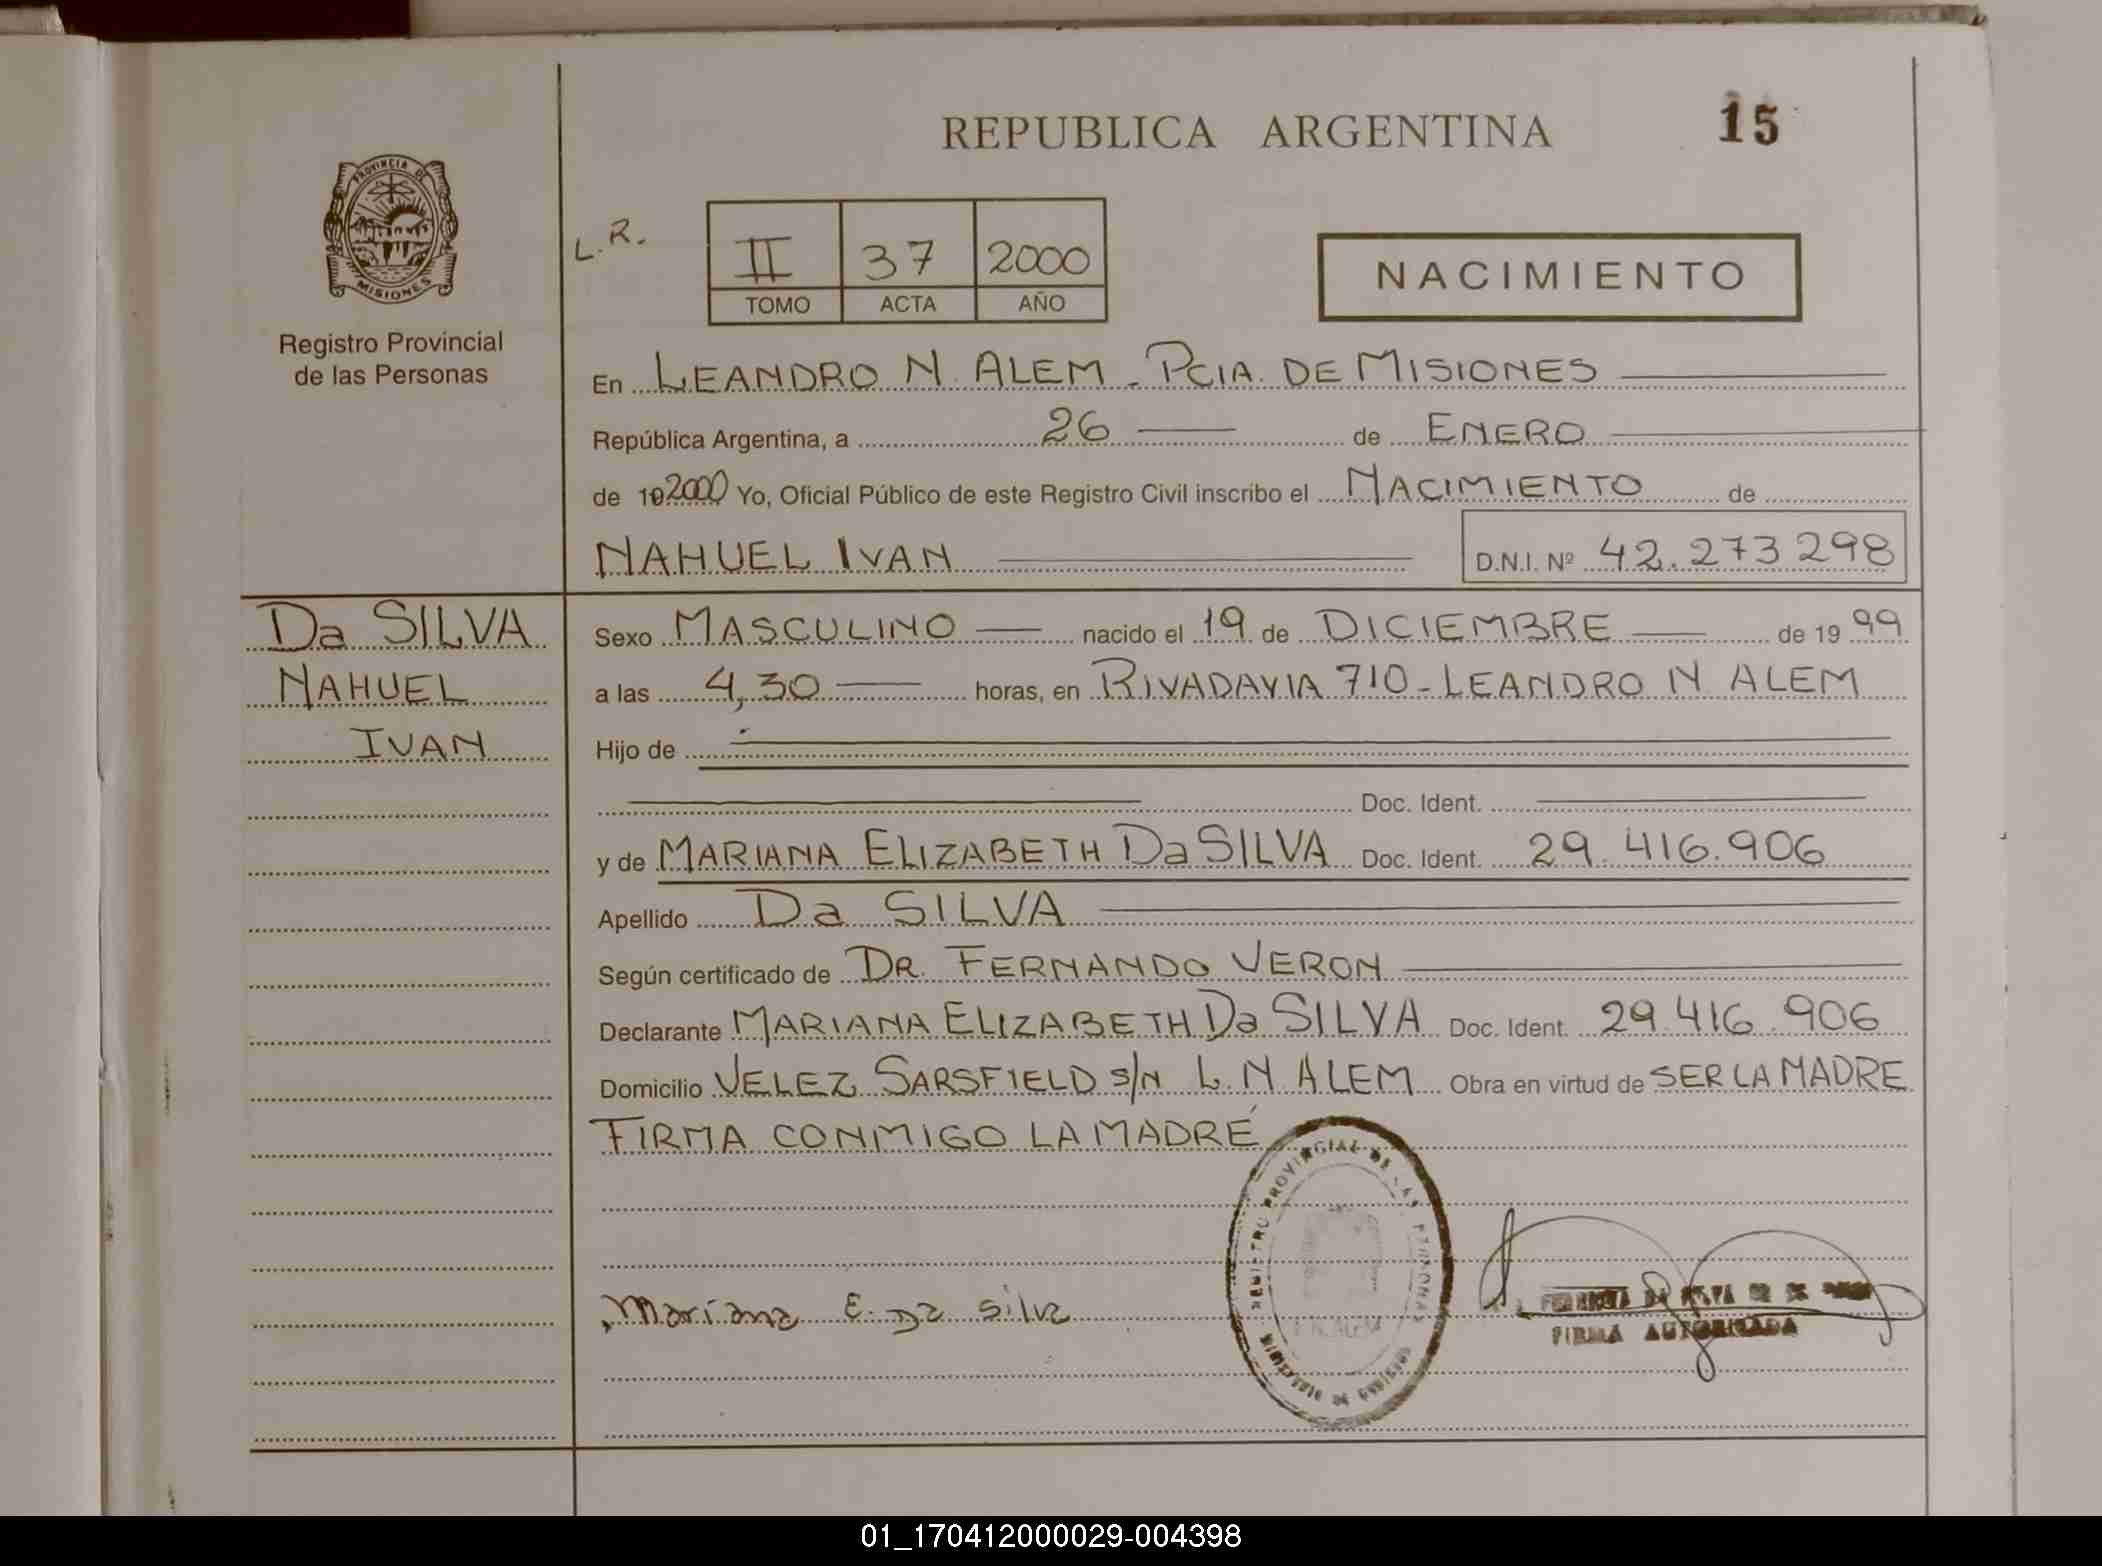 REPUBLICA ARGENTINA
15
PROVINCIA DE
MISIONES
Registro Provincial
de las Personas
L.R.
II 37 2000
TOMO ACTA AÑO
NACIMIENTO
En LEANDRO N. ALEM. PCIA. DE MISIONES
República Argentina, a 26 de ENERO
de 19 2000 Yo, Oficial Público de este Registro Civil inscribo el NACIMIENTO de
NAHUEL IVAN D.N.I. Nº 42.273298
Da SILVA
NAHUEL
IVAN
Sexo MASCULINO nacido el 19 de DICIEMBRE de 1999
a las 4,30 horas, en RIVADAVIA 710 - LEANDRO N. ALEM
Hijo de
Doc. Ident.
y de MARIANA ELIZABETH Da SILVA Doc. Ident. 29.416.906
Apellido Da SILVA
Según certificado de DR. FERNANDO VERON
Declarante MARIANA ELIZABETH Da SILVA Doc. Ident. 29.416.906
Domicilio VELEZ SARSFIELD s/N L. N. ALEM Obra en virtud de SER LA MADRE
FIRMA CONMIGO LA MADRE
REGISTRO PROVINCIAL DE LAS PERSONAS
L.N. ALEM
Mariana E. Da Silva
FIRMA AUTORIZADA
01_170412000029-004398